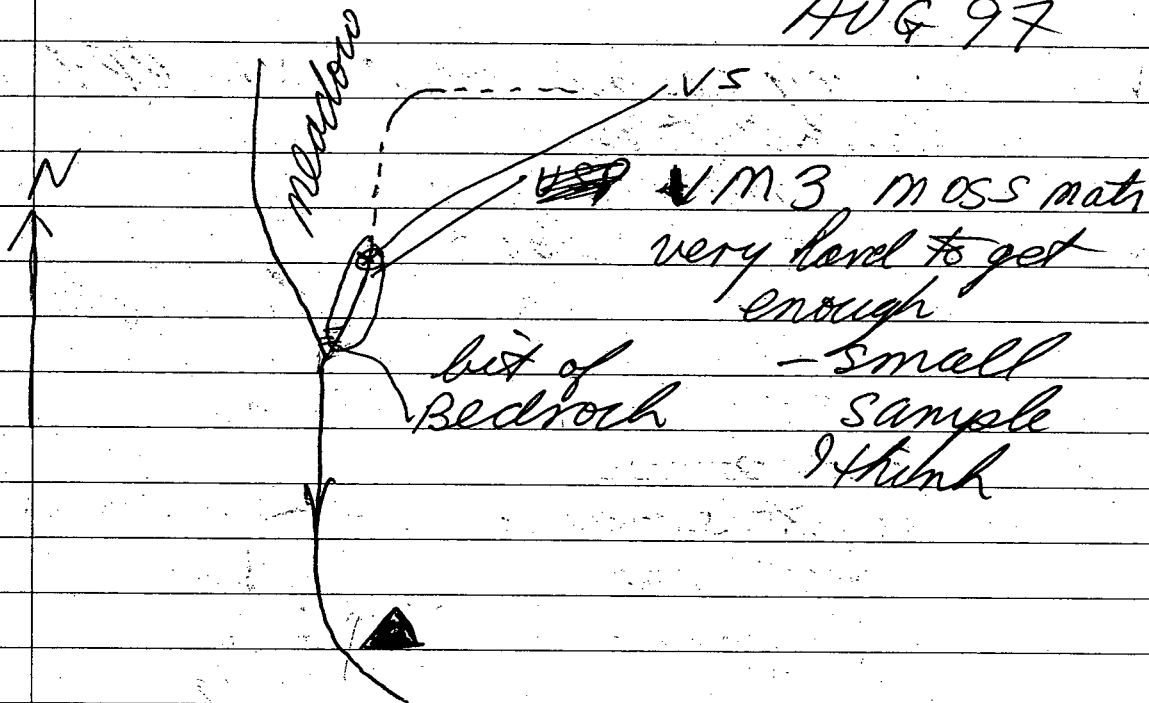 AUG 97
meadow
N
VS
VM3 moss mats
very hard to get
enough
- small
sample
I think
bit of
Bedrock